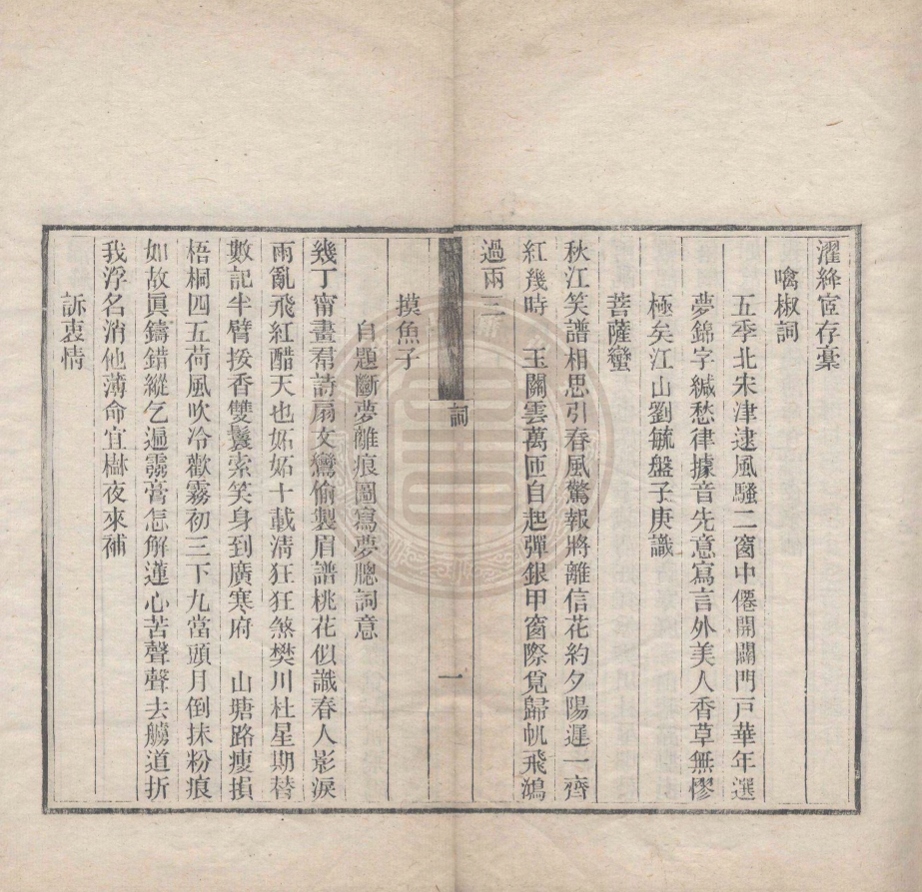 濯絳宧存稾
噙椒詞
五季北宋津逮風騷二窗中僊開闢門戸華年選
夢錦字緘愁律據音先意寫言外美人香草無憀
極矣江山劉毓盤子庚識
菩薩蠻
秋江笑譜相思引春風驚報將離信花約夕陽遲一齊
紅幾時　玉關雲萬匝自起彈銀甲窗際覓歸帆飛鴻
過兩三
詞
一
摸魚子
自題斷夢離痕圖寫夢聰詞意
幾丁甯畫羣詩扇文鴛偷製眉譜桃花似識春人影淚
雨亂飛紅醋天也妬妬十載淸狂狂煞樊川杜星期替
數記半臂授香雙鬟索笑身到廣寒府　山塘路瘦損
梧桐四五荷風吹冷歡霧初三下九當頭月倒抹粉痕
如故眞鑄錯縱乞遍靈膏怎解蓮心苦聲聲去艣道折
我浮名消他薄命宜櫟夜來補
訴衷情